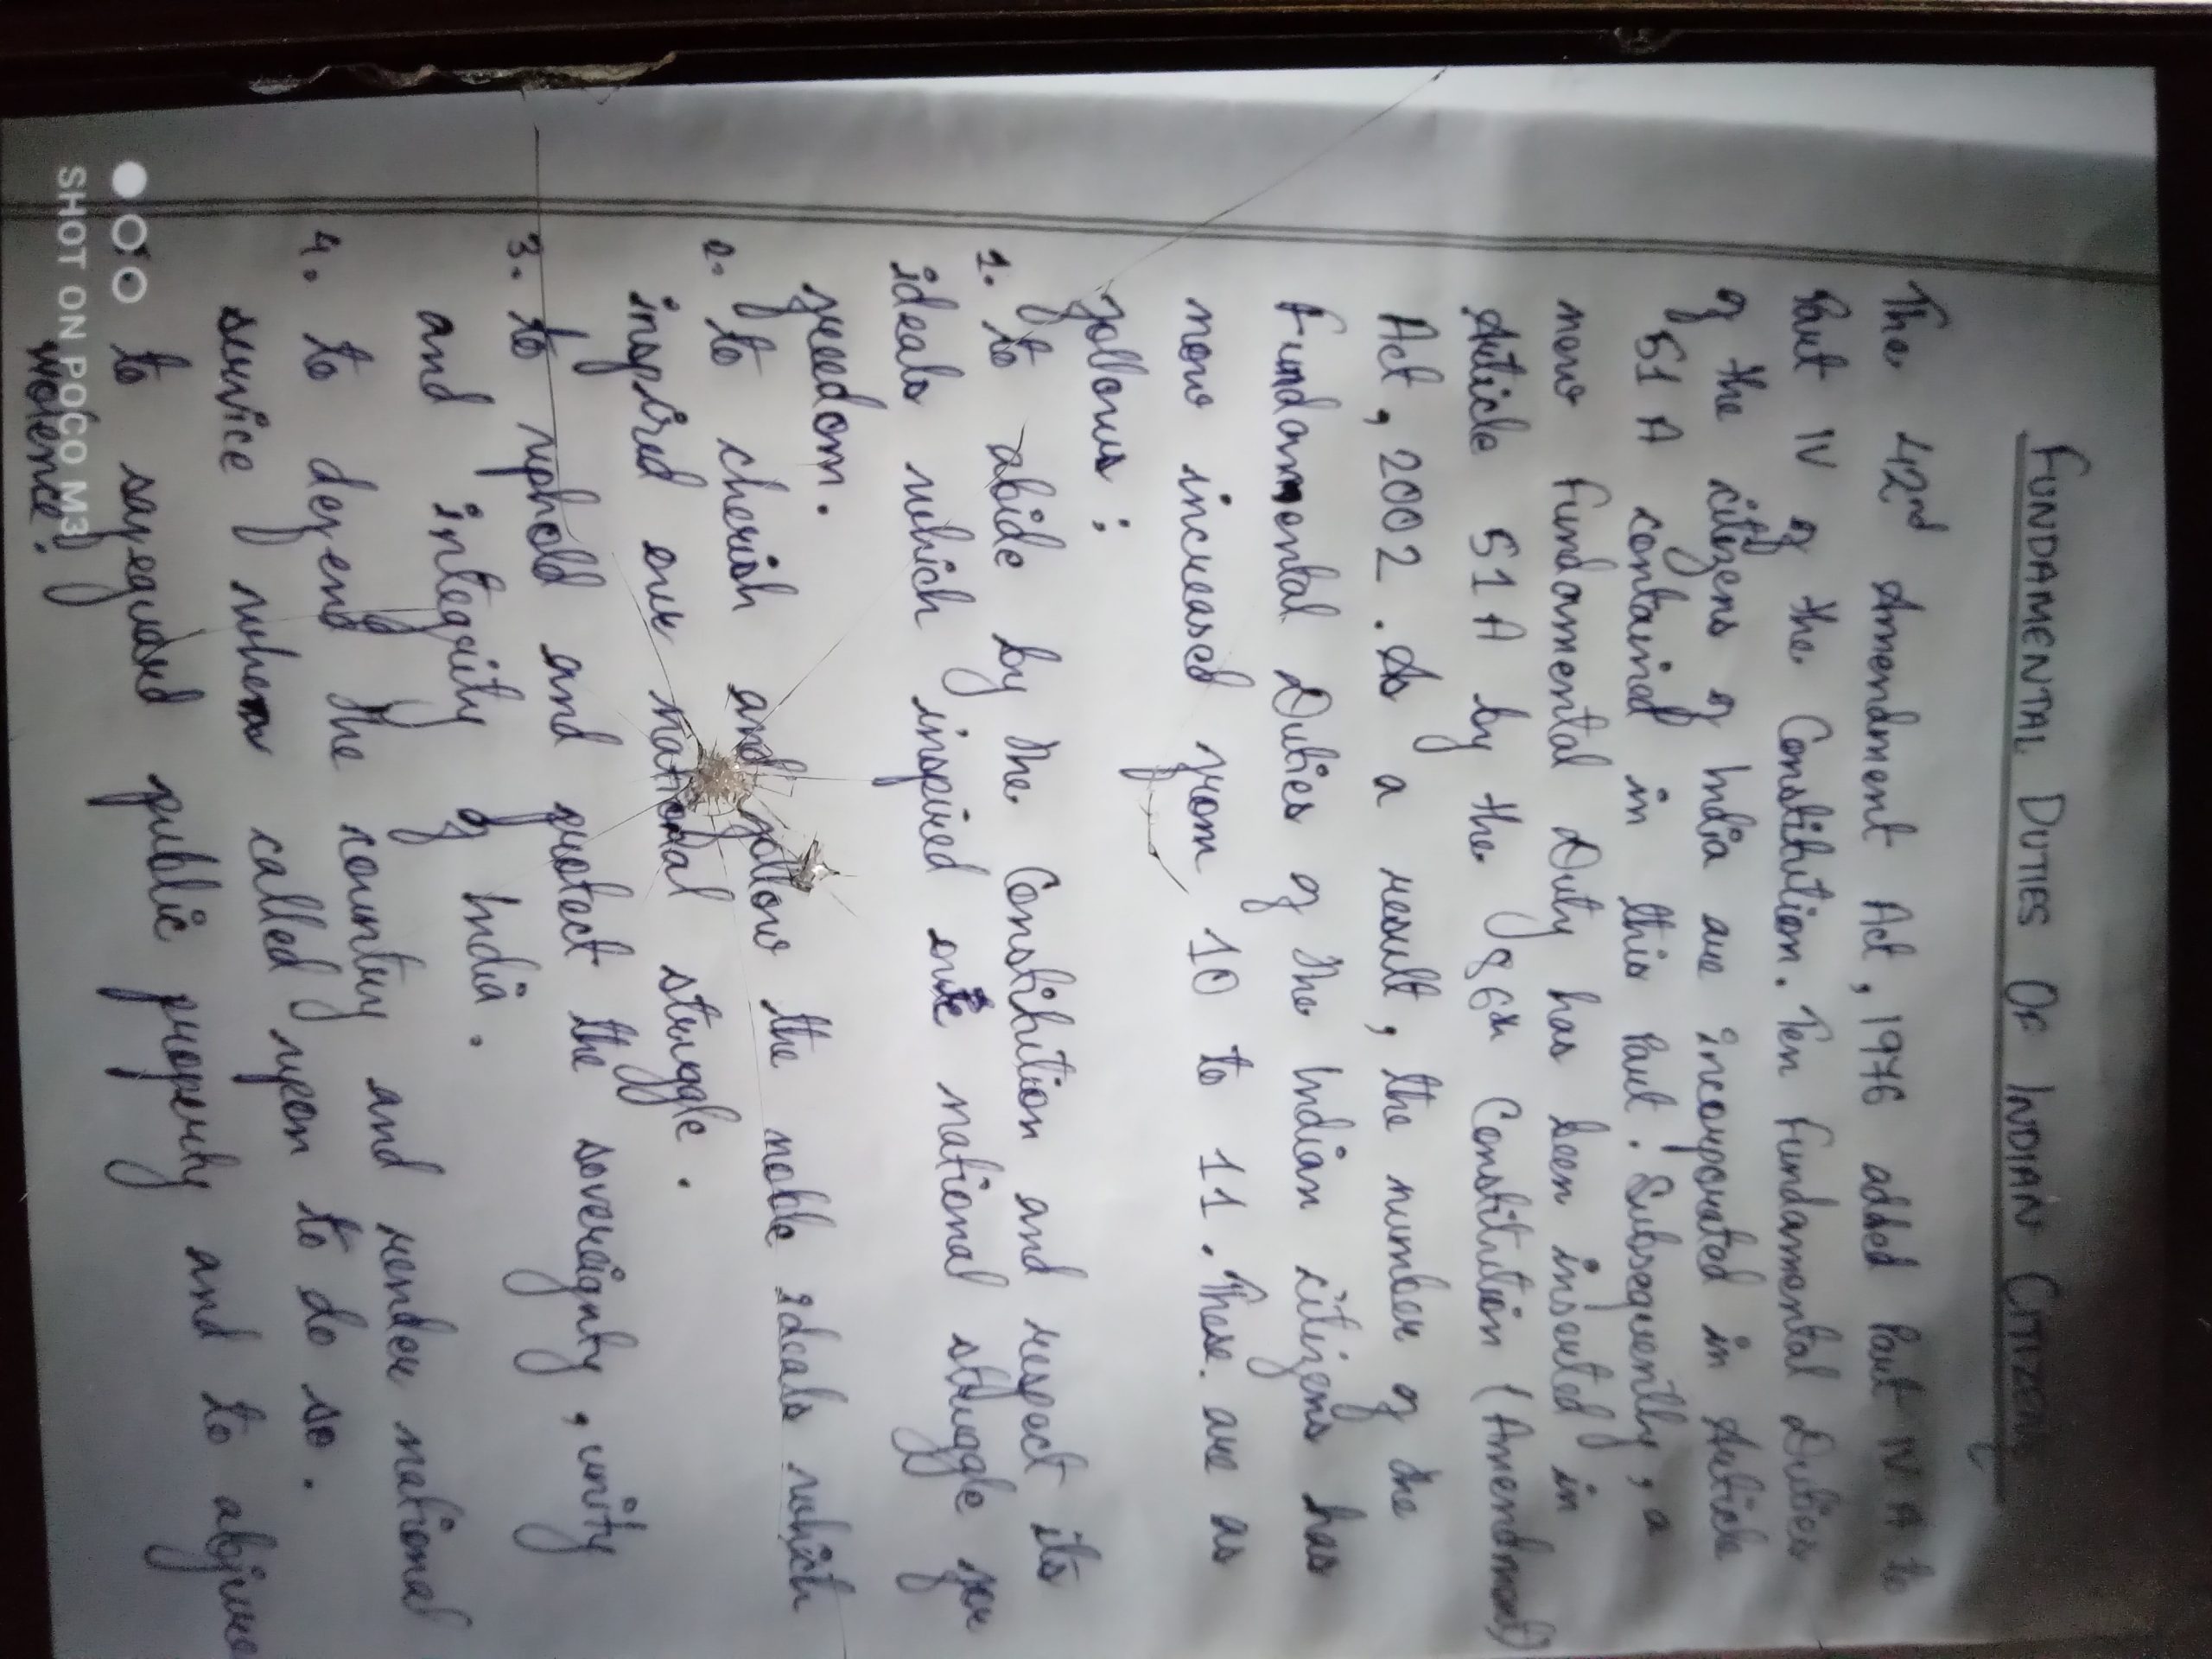 FUNDAMENTAL DUTIES OF INDIAN CITIZENS
The 42nd Amendment Act, 1976 added Part IV A to
Part IV of the Constitution. Ten Fundamental Duties
of the citizens of India are incorporated in Article
51 A contained in this Part. Subsequently, a
new Fundamental Duty has been inserted in
Article 51 A by the 86th Constitution (Amendment)
Act, 2002. As a result, the number of the
Fundamental Duties of the Indian citizens has
now increased from 10 to 11. These are as
follows:
1. to abide by the Constitution and respect its
ideals which inspired our national struggle for
freedom.
2. to cherish and follow the noble ideals which
inspired our national struggle.
3. to uphold and protect the sovereignty, unity
and integrity of India.
4. to defend the country and render national
service when called upon to do so.
to safeguard public property and to abjure
violence.
SHOT ON POCO M3